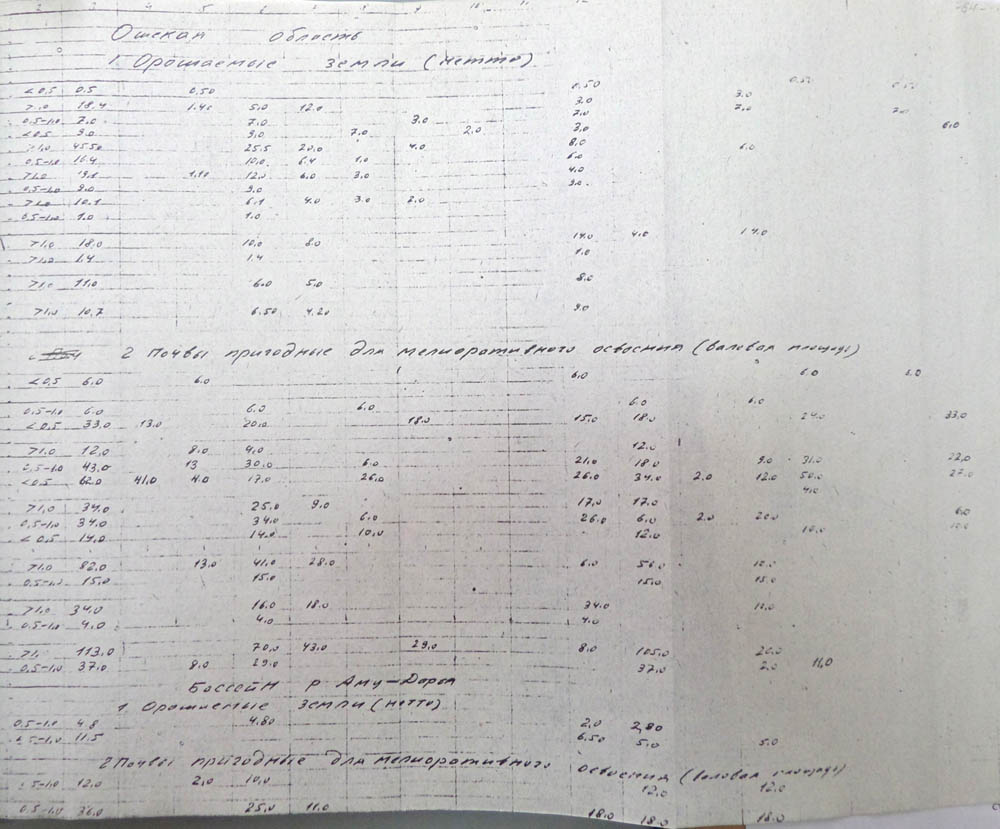 2 3 4 5 6 7 8 9 10 11 12
Ошская область
1 Орошаемые земли (нетто)
<0,5 0.5 0,50 0,50 0,50 0,50
>1,0 18,4 1.40 5,0 12,0 3,0 3,0
0,5-1,0 7,0 7,0 3,0 7,0 7,0 7,0
<0,5 9,0 9,0 7,0 2,0 3,0 6,0
>1,0 45.50 25.5 20,0 4,0 8,0 6,0
0,5-1,0 16.4 10,0 6,4 1,0 6,0
>1,0 19,1 1,10 12,0 6,0 3,0 4,0
0,5-1,0 9,0 9,0 9,0
>1,0 10.1 6.1 4,0 3,0 2,0
0,5-1,0 1,0 1,0
>1,0 18,0 10,0 8,0 14,0 4,0 14,0
>1,0 1.4 1.4 1,0
>1,0 11,0 6,0 5,0 8,0
>1,0 10.7 6.50 4.20 9,0
2 Почвы пригодные для мелиоративного освоения (валовая площадь)
<0,5 6,0 6,0 6,0 6,0 6,0
0,5-1,0 6,0 6,0 6,0 6,0 6,0
<0,5 33,0 13,0 20,0 18,0 15,0 18,0 24,0 33,0
>1,0 12,0 8,0 4,0 12,0
0,5-1,0 43,0 13 30,0 6,0 21,0 18,0 9,0 31,0 22,0
<0,5 62,0 41,0 4,0 17,0 26,0 26,0 34,0 2,0 12,0 50,0 22,0
4,0
>1,0 34,0 25,0 9,0 17,0 17,0
0,5-1,0 34,0 34,0 6,0 26,0 6,0 2,0 20,0 6,0
<0,5 14,0 14,0 10,0 12,0 10,0 10,0
>1,0 82,0 13,0 41,0 28,0 6,0 56,0 10,0
0,5-1,0 15,0 15,0 15,0 15,0
>1,0 34,0 16,0 18,0 34,0 11,0
0,5-1,0 4,0 4,0 4,0
>1, 113,0 70,0 43,0 29,0 8,0 105,0 20,0
0,5-1,0 37,0 8,0 29,0 37,0 2,0 11,0
Бассейн р Аму-Дарья
1 Орошаемые земли (нетто)
0,5-1,0 4.8 4.80 2,0 2,80
0,5-1,0 11.5 6.50 5,0 5,0
2 Почвы пригодные для мелиоративного освоения (валовая площадь)
0,5-1,0 12,0 2,0 10,0 12,0 12,0
0,5-1,0 36,0 25,0 11,0 18,0 18,0 18,0